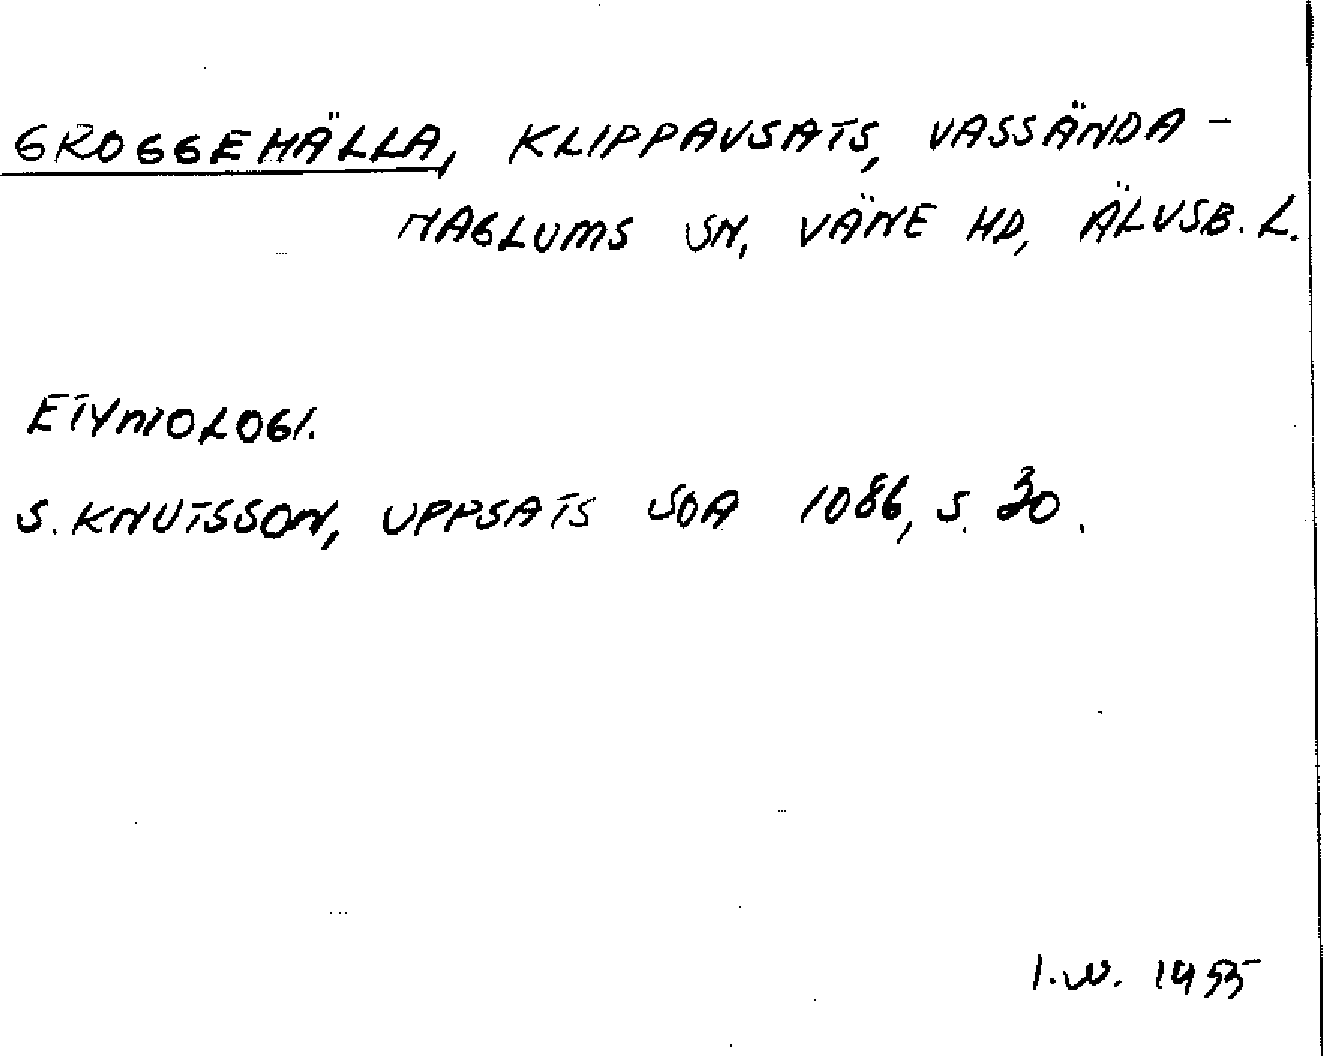 GROGGEHÄLLA, KLIPPAVSATS, VASSÄNDA-
NAGLUMS SN, VÄNE HD, ÄLVSB. L.
ETYMOLOGI.
S. KNUTSSON, UPPSATS SOA 1086, S. 30.
I.W. 1955